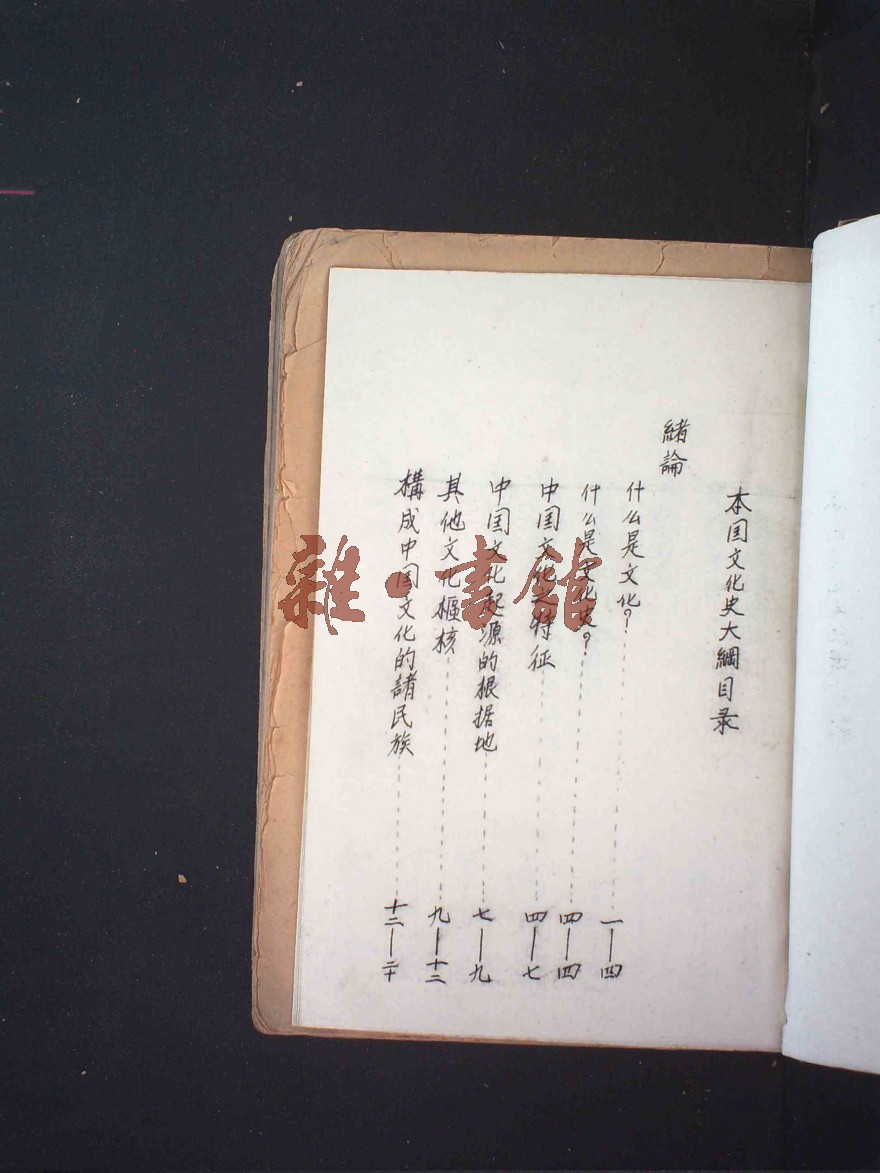 本囯文化史大綱目录
緒論
什么是文化？ 一—四
什么是文化史？ 四—四
中囯文化之特征 四—七
中囯文化起源的根据地 七—九
其他文化樞核 九—十二
構成中囯文化的諸民族 十二—二十
雜·書館